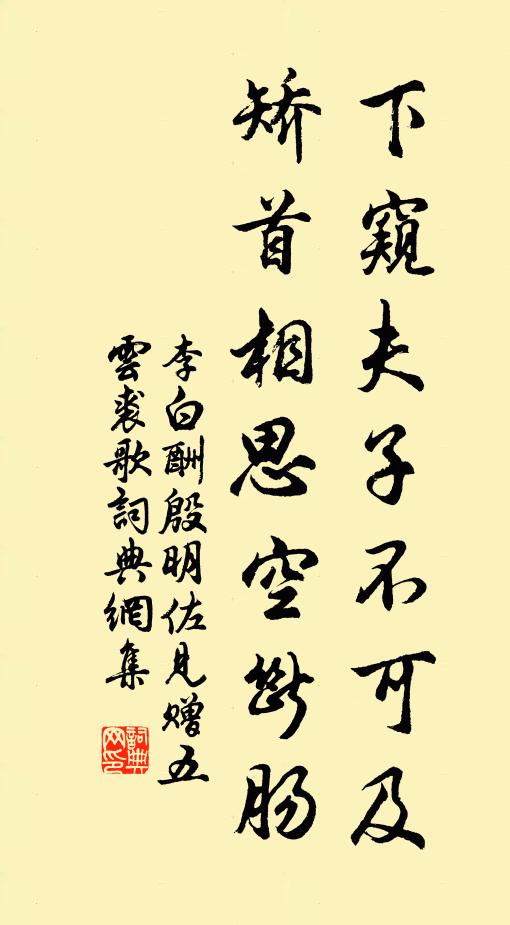 下窺夫子不可及
矯首相思空斷腸
李白酬殷明佐見贈五
雲裘歌詞典網集
詞典網印